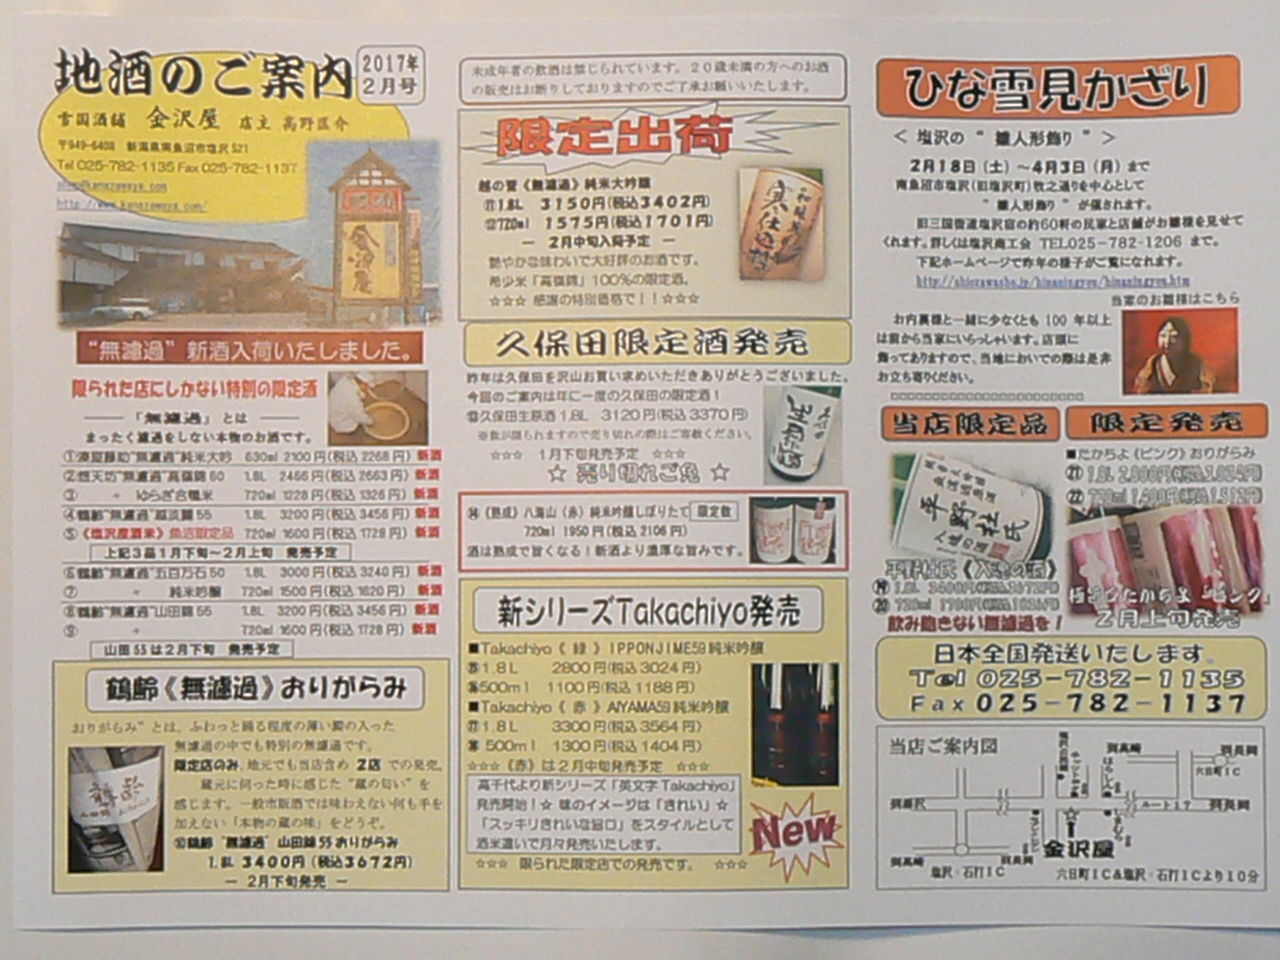 地酒のご案内
2017年
2月号
雪国酒舗 金沢屋 店主 高野匡介
〒949-6408 新潟県南魚沼市塩沢521
Tel 025-782-1135 Fax 025-782-1137
http://www.kanazawaya.com/
"無濾過"新酒入荷いたしました。
限られた店にしかない特別の限定酒
「無濾過」とは
まったく濾過をしない本物のお酒です。
"無濾過"純米大吟 630ml 2100円(税込2268円) 新酒
"無濾過"高嶺錦60 1.8L 2466円(税込2663円) 新酒
③ 〃 ゆらぎ合鴨米 720ml 1228円(税込1326円) 新酒
④鶴齢"無濾過"越淡麗55 1.8L 3200円(税込3456円) 新酒
⑤《塩沢産酒米》魚沼限定品 720ml 1600円(税込1728円) 新酒
上記3品1月下旬～2月上旬 発売予定
⑥鶴齢"無濾過"五百万石50 1.8L 3000円(税込3240円) 新酒
⑦ 〃 純米吟醸 720ml 1500円(税込1620円) 新酒
⑧鶴齢"無濾過"山田錦55 1.8L 3200円(税込3456円) 新酒
⑨ 〃 720ml 1600円(税込1728円) 新酒
山田55は2月下旬 発売予定
鶴齢《無濾過》おりがらみ
おりがらみ"とは、ふわっと踊る程度の薄い澱の入った
無濾過の中でも特別の無濾過です。
限定店のみ、地元でも当店含め2店での発売。
蔵元に伺った時に感じた"蔵の匂い"を
感じます。一般市販酒では味わえない何も手を
加えない「本物の蔵の味」をどうぞ。
⑩鶴齢"無濾過"山田錦55おりがらみ
1.8L 3400円(税込3672円)
― 2月下旬発売 ―
未成年者の飲酒は禁じられています。20歳未満の方へのお酒
の販売はお断りしておりますのでご了承お願いいたします。
限定出荷
越の誉《無濾過》純米大吟醸
⑪1.8L 3150円(税込3402円)
⑫720ml 1575円(税込1701円)
― 2月中旬入荷予定 ―
艶やかな味わいで大好評のお酒です。
希少米「高嶺錦」100%の限定酒。
☆☆☆ 感謝の特別価格で!!☆☆☆
久保田限定酒発売
昨年は久保田を沢山お買い求めいただきありがとうございました。
今回のご案内は年に一度の久保田の限定酒!
⑬久保田生原酒1.8L 3120円(税込3370円)
※数が限られますので売り切れの際はご容赦ください。
☆☆☆ 1月下旬発売予定 ☆☆☆
☆ 売り切れご免 ☆
⑭《熟成》八海山(赤)純米吟醸しぼりたて 限定数
720ml 1950円(税込2106円)
酒は熟成で旨くなる!新酒より濃厚な旨みです。
新シリーズTakachiyo発売
■Takachiyo《 緑 》IPPONJIME59純米吟醸
1.8L 2800円(税込3024円)
500ml 1100円(税込1188円)
■Takachiyo《 赤 》AIYAMA59純米吟醸
⑰1.8L 3300円(税込3564円)
⑱ 500ml 1300円(税込1404円)
☆☆☆《赤》は2月中旬発売予定 ☆☆☆
高千代より新シリーズ「英文字Takachiyo」
発売開始!☆ 味のイメージは「きれい」☆
「スッキリきれいな旨口」をスタイルとして
酒米違いで月々発売いたします。
New
☆☆☆ 限られた限定店での発売です。 ☆☆☆
ひな雪見かざり
＜ 塩沢の " 雛人形飾り " ＞
2月18日(土)～4月3日(月)まで
南魚沼市塩沢(旧塩沢町)牧之通りを中心として
"雛人形飾り"が催されます。
旧三国街道塩沢宿の約60軒の民家と店舗がお雛様を見せて
くれます。詳しくは塩沢商工会 TEL025-782-1206 まで。
下記ホームページで昨年の様子がご覧になれます。
当家のお雛様はこちら
お内裏様と一緒に少なくとも100年以上
は前から当家にいらっしゃいます。店頭に
飾ってありますので、当地においでの際は是非
お立ち寄りください。
当店限定品
平野杜氏
平野杜氏《入魂の酒》
⑲ 1.8L 3400円(税込3672円)
⑳ 720ml 1700円(税込1836円)
飲み飽きない無濾過を!
限定発売
■たかちよ(ピンク)おりがらみ
㉑ 1.8L 2,800円(税込3,024円)
㉒ 720ml 1,400円(税込1,512円)
「ピンク」
2月上旬発売
日本全国発送いたします。
Tel 025-782-1135
Fax 025-782-1137
当店ご案内図
至高崎
至長岡
六日町IC
ルート17
至長岡
☆
金沢屋
至高崎
至長岡
塩沢・石打IC
六日町IC&塩沢・石打ICより10分